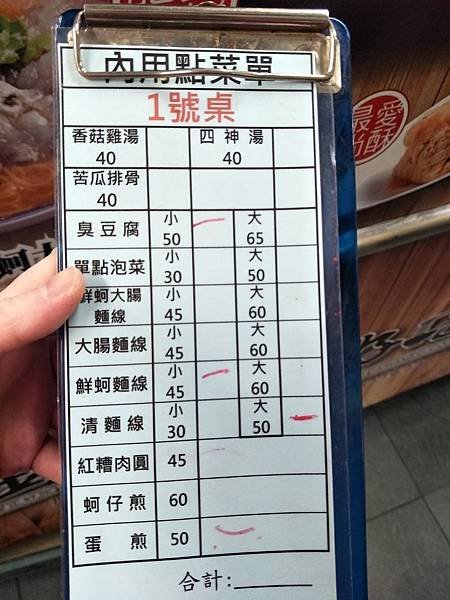 內用點菜單
1號桌
香菇雞湯 40 四神湯 40
苦瓜排骨 40
臭豆腐 小 50 大 65
單點泡菜 小 30 大 50
鮮蚵大腸麵線 小 45 大 60
大腸麵線 小 45 大 60
鮮蚵麵線 小 45 大 60
清麵線 小 30 大 50
紅糟肉圓 45
蚵仔煎 60
蛋煎 50
合計:
最愛
酥
蚵